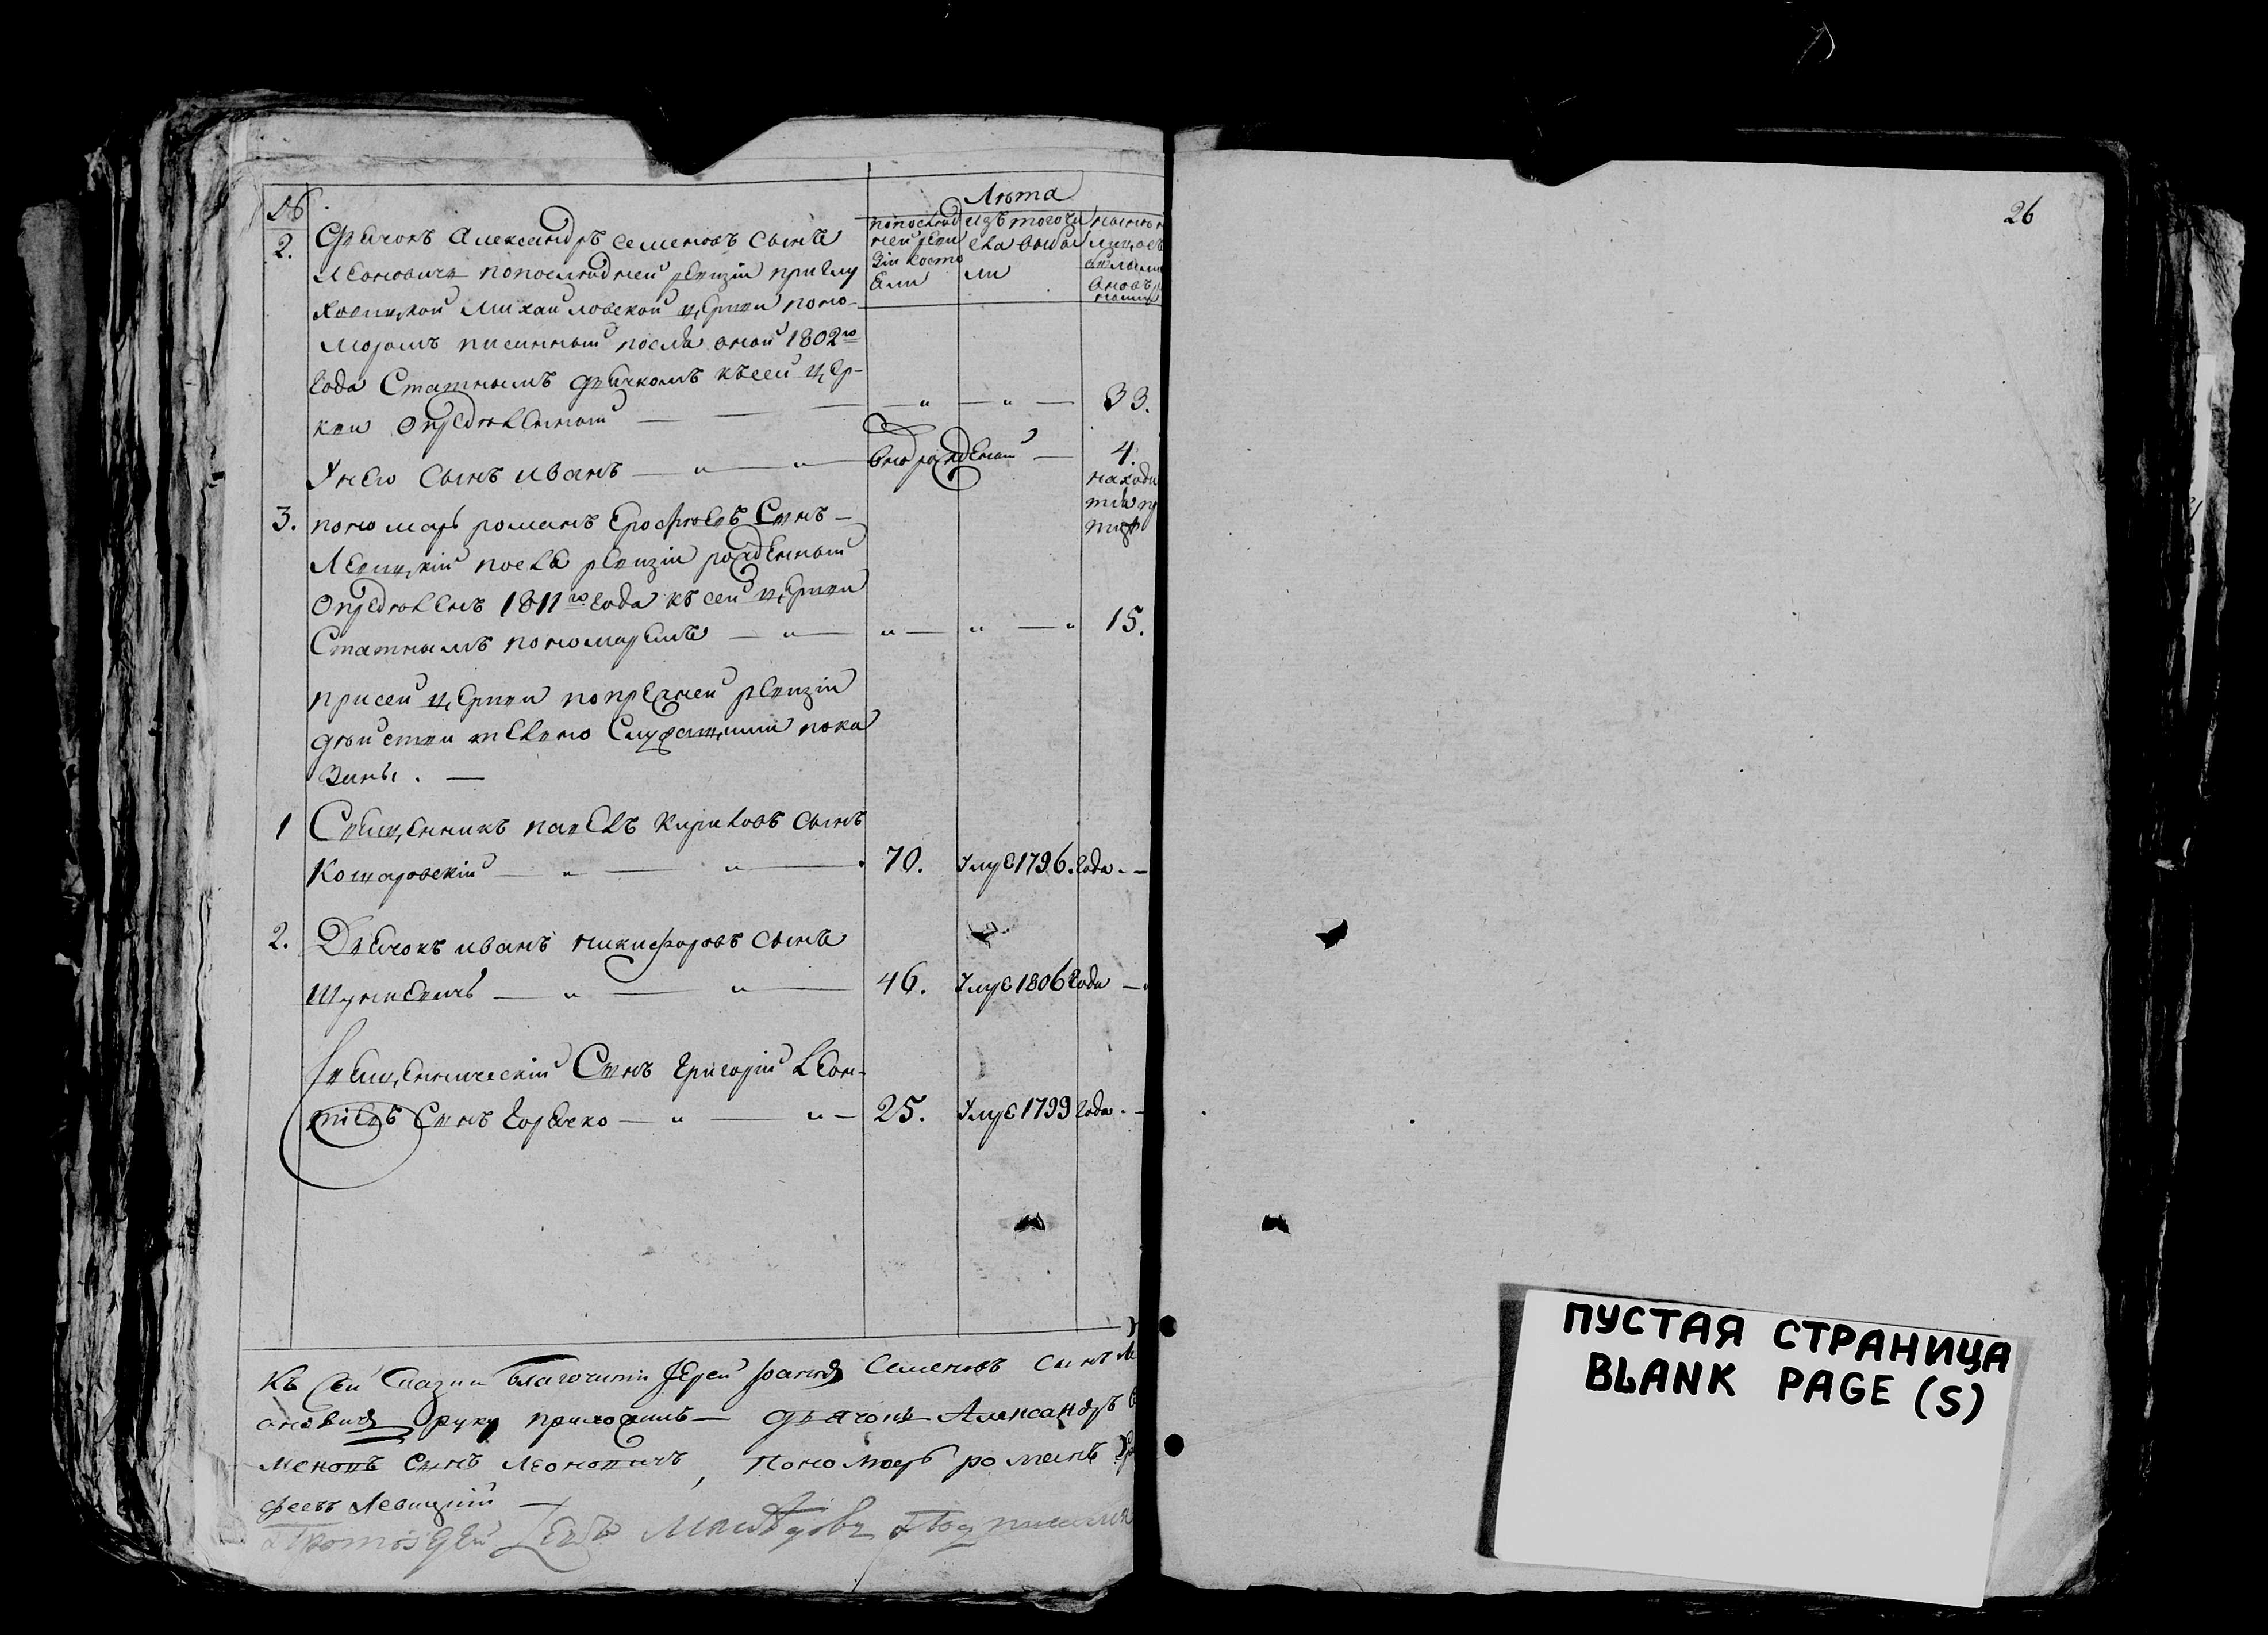 №
Лѣта
попослѣд
ней реви
зіи состо
яли
изъ того чи
сла выбы
ли
2. Дьячокъ александръ семеновъ сынъ
леоновичъ попослѣдней ревизіи при глу
ховицкой михайловской церкви поно-
моремъ писанный послѣ оной 1802го
года Статнымъ дьячкомъ късей цер-
кви Опредѣленный — — — " — " — 33.
Унего сынъ иванъ — " — " — вно рожденый — 4.
находи
3. пономарь романъ Ерофѣевъ Сынъ —
Левицкій после ревизіи рожденный
Опредѣленъ 1811го года къ сей церкви
Статнымъ пономаремъ — " — " — " — " 15.
присей церкви попрежней ревизіи
дѣйствительно Служащими пока
заны . —
1 Священникъ павелъ кириловъ сынъ
Кошаровскій — " — " — 70. Умре 1796. года . —
2. Дьячокъ иванъ никифоровъ сынъ
— " — " — 46. Умре 1806 года —
Священническій Сынъ григорій леон-
тіевъ Сынъ горячко — " — " — 25. Умре 1799 года . —
Къ сей Сказки благочиній Іерей Семеновъ сынъ Ле
оновичъ руку приложилъ — дьячокъ Александръ Се
меновъ сынъ леоновичъ, пономарь романъ Еро
феевъ Левицкій —
26
ПУСТАЯ СТРАНИЦА
BLANK PAGE (S)